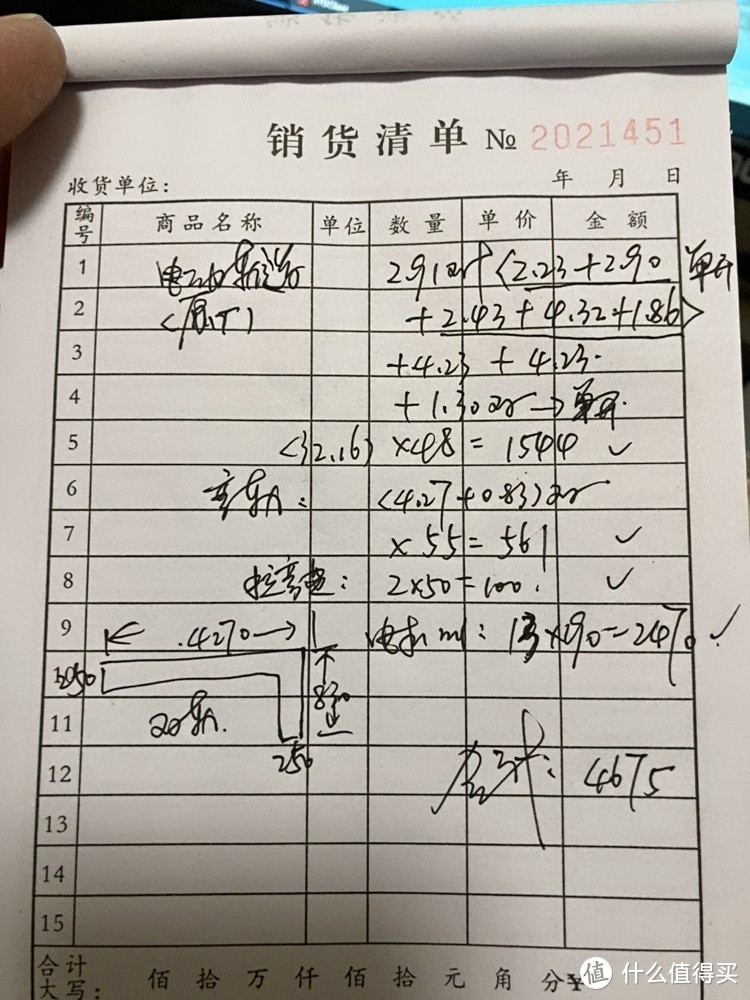 销货清单 № 2021451
收货单位: 年 月 日
编号 商品名称 单位 数量 单价 金额
1 2.91 (2.23+2.90 单开
2 +2.43+4.32+1.86)
3 +4.23 + 4.23
4 +1.30 → 单开
5 (32.16) ×48 = 1544 ✓
6 (4.27+0.83)2
7 × 55 = 561 ✓
8 2×50=100. ✓
9 .4270 13×190=2470 ✓
250 830
11
250
12 合计: 4675
13
14
15
合计大写: 佰 拾 万 仟 佰 拾 元 角 分¥
值 什么值得买